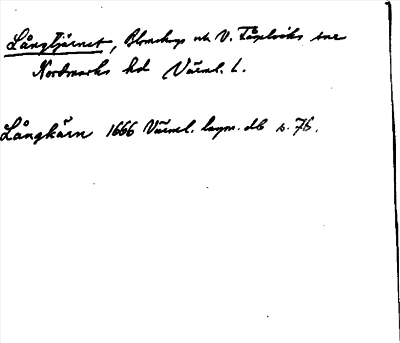 Långtjärnet, Blomskogs och V. Fågelviks snr
Nordmarks hd Värml. L.
Långkärn 1666 Värml. lagm. db s. 76.